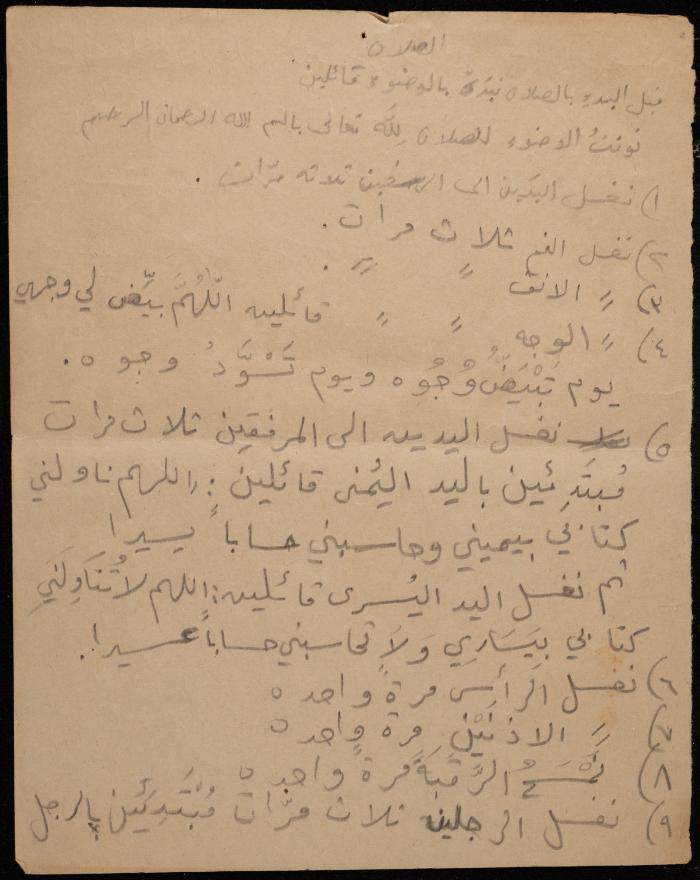 الصلاة
قبل البدء بالصلاة نبتدئ بالوضوء قائلين
نويتُ الوضوء للصلاة لِلّه تعالى بالسم الله الرحمان الرحيم
١) نغسل اليدين الى الرسغين ثلاثه مرّات .
٢) نغسل الفم ثلاث مرات .
٣)〃 الانف 〃 〃 .
٤) 〃 الوجه 〃 〃 قائلين اللّهُمَّ بيِّض لي وجهي
يوم تَبْيَضُّ وُجُوه ويوم تَسْوَدُّ وجوه .
٥) نغسل اليدين الى المرفقين ثلاث مرات
مُبتَدِئين باليد اليُمنى قائلين : اللهم ناولني
كتابي بيميني وحاسبني حساباً يسيرا
ثم نغسل اليد اليُسرى قائلين : اللهم لا تُنَاوِلَني
كتابي بِيَسَارِي وَلاَ تحاسبني حساباً عسيرا .
٦) نغسل الرَأس مرةً واحده
٧) 〃 الاذنَيْنِ مرة واحده
٨) نَمْسَحُ الرَّقَبَةَ مرةً واحده
٩) نغسل الرجلين ثلاث مرّات مُبْتَدِئين بالرجل